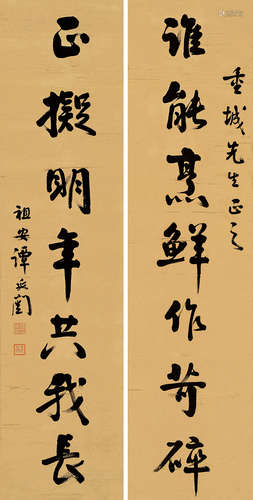 城先生正之
誰能烹鮮作苛碎
正擬明年共我長
祖安譚延闓